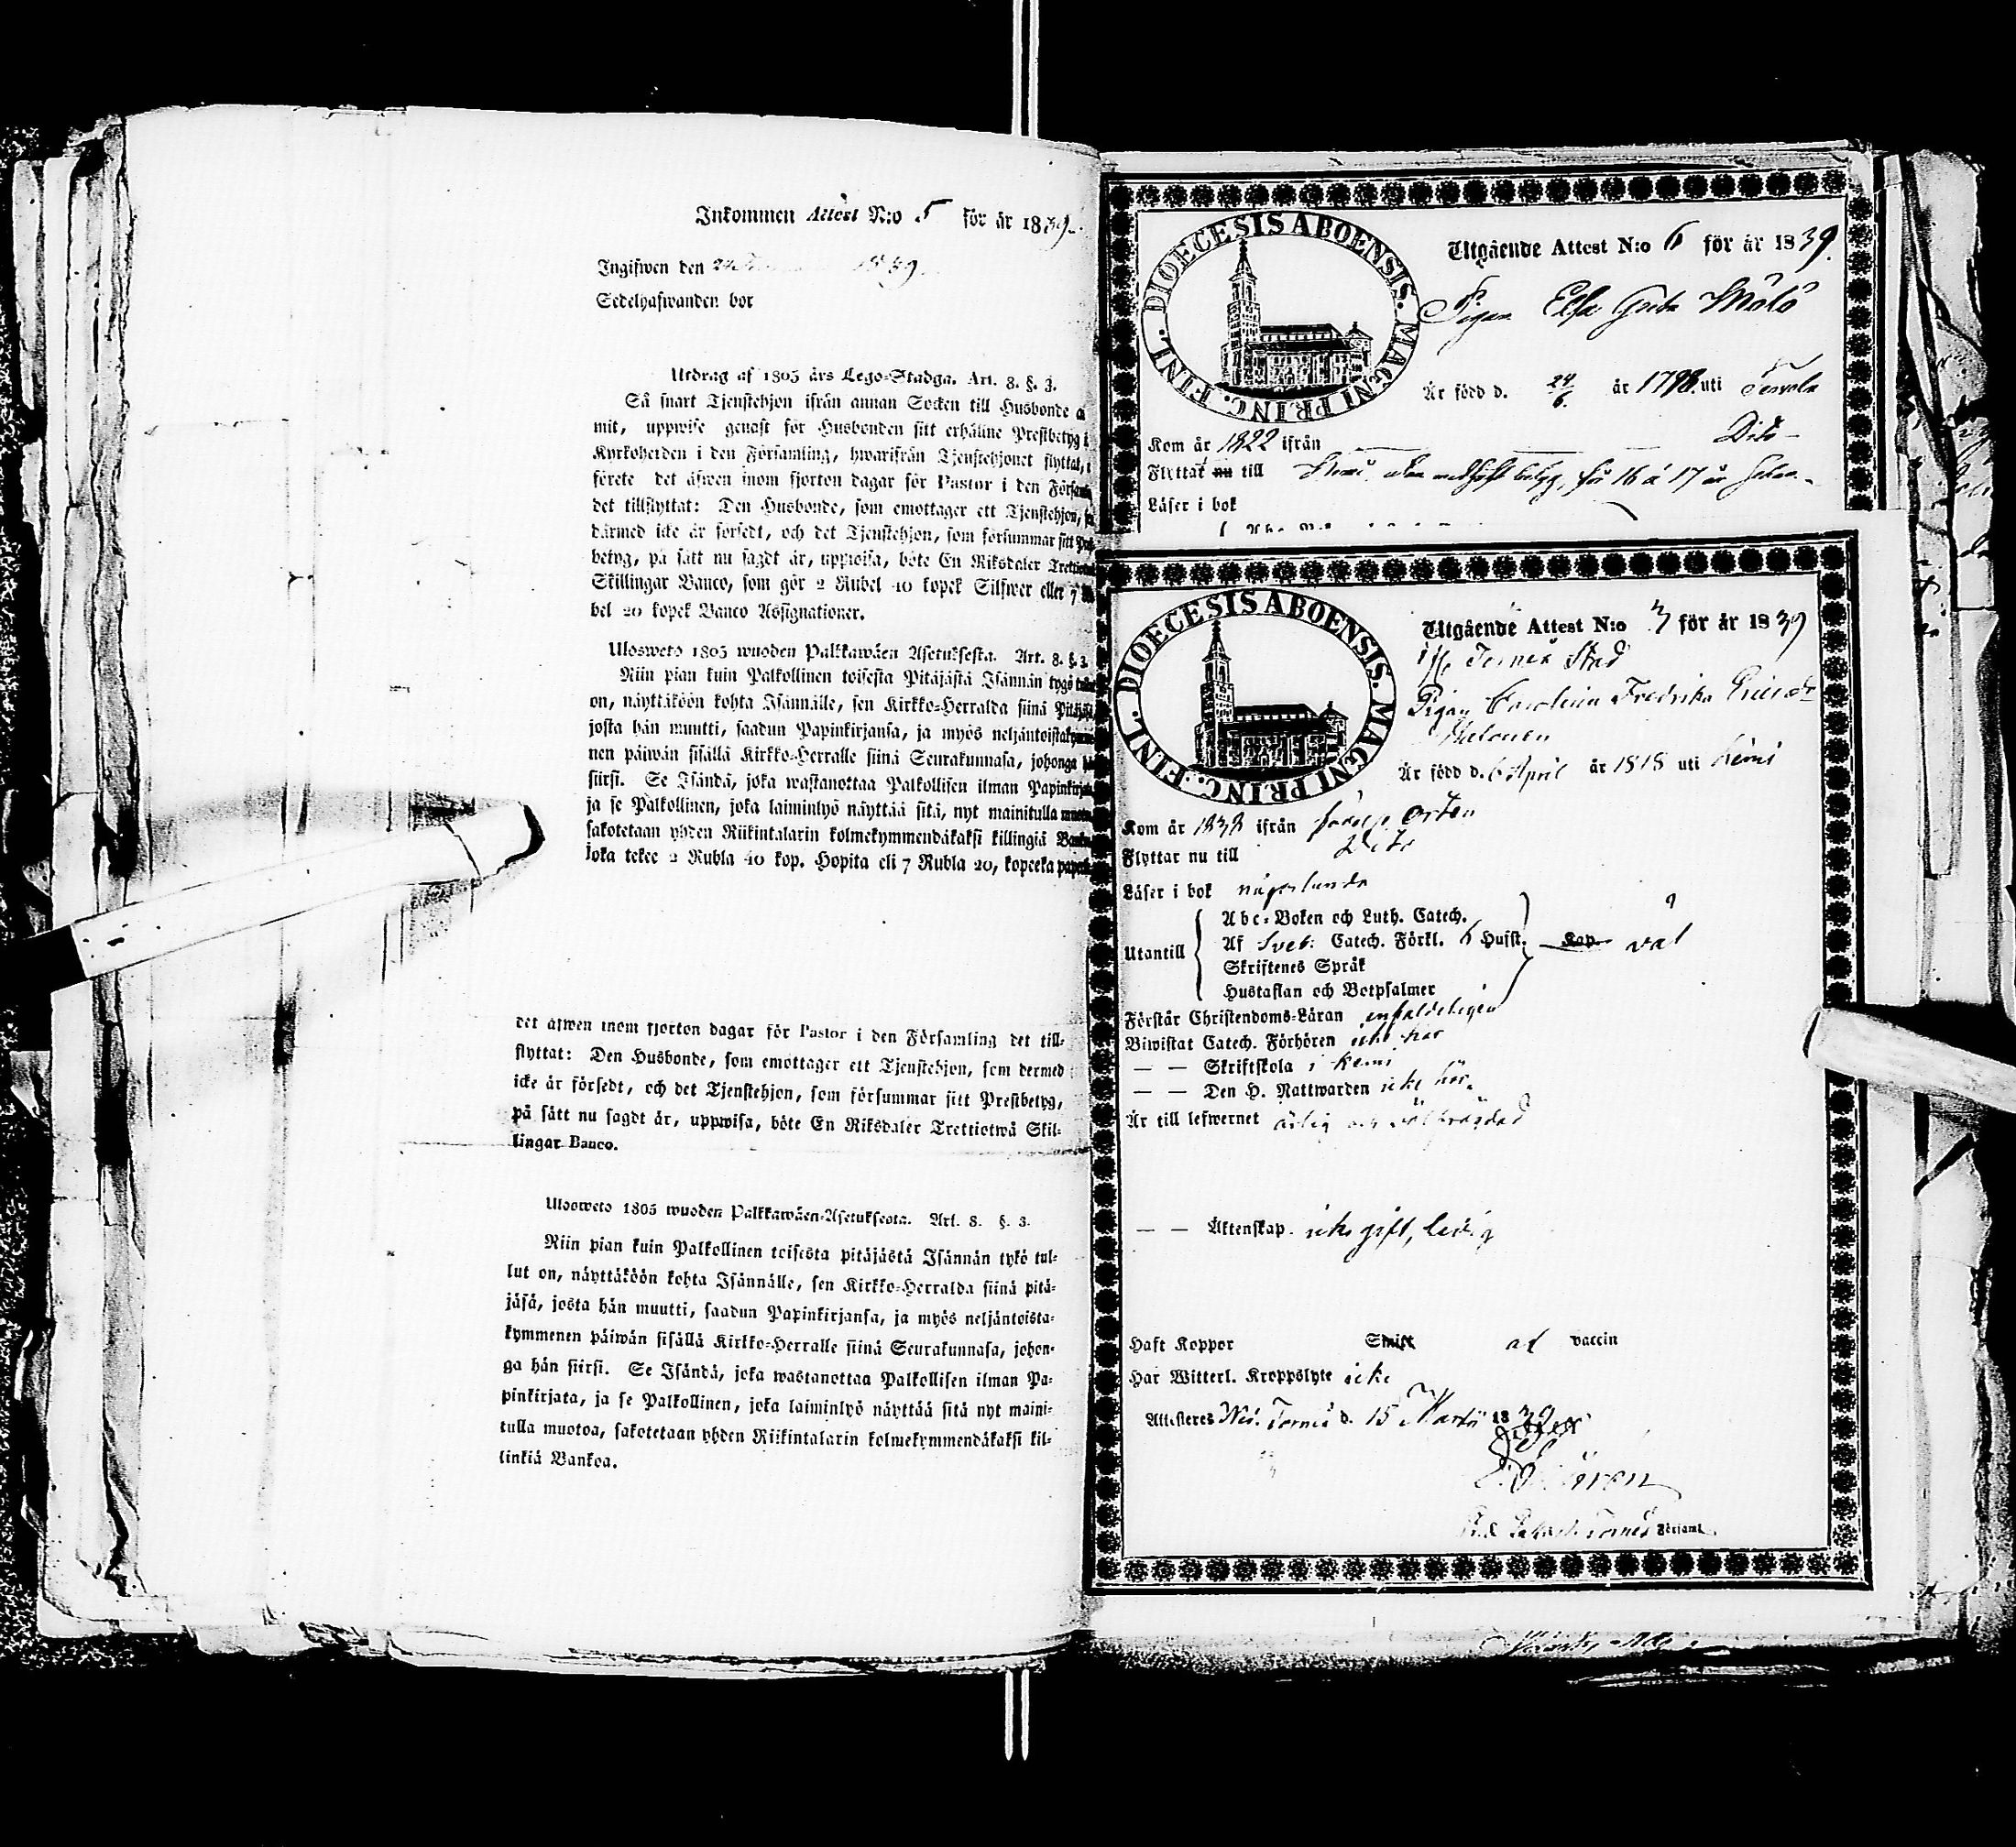 Inkommen Attest N:o 5 för år 1839.
Ingifwen den 1839
Sedelhafwanden bor
Utdrag af 1805 års Lego-Stadga. Art. 8. §. 3.
Så snart Tjenstehjon ifrån annan Socken till Husbonde
mit, uppwise genast för Husbonden sitt erhållne Prestbetyg
Kyrkoherden i den Församling, hwarifrån Tjenstehjonet flyttat,
förete det äfwen inom fjorton dagar för Pastor i den
det tillflyttat: Den Husbonde, som emottager ett Tjenstehjon,
därmed icke är försedt, och det Tjenstehjon, som försummar sitt
betyg, på sätt nu sagdt är, uppwisa, böte En Riksdaler
Skillingar Banco, som gör 2 Rubel 40 kopek Silfwer eller 7
bel 20 kopek Banco Assignationer.
Ulosweto 1805 wuoden Palkkawäen Asetuksesta. Art. 8. §. 3.
Niin pian kuin Palkollinen toisesta Pitäjästä Isännän tygö
on, näyttäköön kohta Isännälle, sen Kirkko-Herralda siinä
josta hän muutti, saadun Papinkirjansa, ja myös
nen päiwän sisällä Kirkko-Herralle siinä Seurakunnasa, johonga
siirsi. Se Isändä, joka wastanottaa Palkollisen ilman
ja se Palkollinen, joka laiminlyö näyttää sitä, nyt mainitulla
sakotetaan yhden Riikintalarin kolmekymmendäkaksi killingiä
joka tekee 2 Rubla 40 kop. Hopita eli 7 Rubla 20, kopeeka
det äfwen inom fjorton dagar för Pastor i den Församling det till-
flyttat: Den Husbonde, som emottager ett Tjenstehjon, som dermed
icke är försedt, och det Tjenstehjon, som försummar sitt Prestbetyg,
på sätt nu sagdt är, uppwisa, böte En Riksdaler Trettiotwå Skil-
lingar Banco.
Ulosweto 1805 wuoden Palkkawäen-Asetuksesta. Art. 8. §. 3.
Niin pian kuin Palkollinen toisesta pitäjästä Isännän tykö tul-
lut on, näyttäköön kohta Isännälle, sen Kirkko-Herralda siinä pitä-
jäsä, josta hän muutti, saadun Papinkirjansa, ja myös neljäntoista-
kymmenen päiwän sisällä Kirkko-Herralle siinä Seurakunnasa, johon-
ga hän siirsi. Se Isändä, joka wastanottaa Palkollisen ilman Pa-
pinkirjata, ja se Palkollinen, joka laiminlyö näyttää sitä nyt maini-
tulla muotoa, sakotetaan yhden Riikintalarin kolmekymmendäkaksi kil-
linkiä Bankoa.
DIOECESIS ABOENSIS. MAGNI PRINC. FINL.
Utgående Attest N:o 6 för år 1839.
Pigan Elsa Greta
Är född d. 24/6 år 1798 uti Tervola
Kom år 1822 ifrån Dito
Flyttat nu till
Läser i bok
DIOECESIS ABOENSIS. MAGNI PRINC. FINL.
Utgående Attest N:o 3 för år 1839
Torneå Stad
Pigan Carolina Fredrika
Är född d. 6 April år 1818 uti Kemi
Kom år 1838 ifrån orten
Flyttar nu till
Läser i bok någorlunda
Abc-Boken och Luth. Catech.
Utantill Af Sveb: Catech. Förkl. 6 Hufst. Kap. väl
Skriftenes Språk
Hustaflan och Botpsalmer
Förstår Christendoms-Läran enfaldeligen
Biwistat Catech. Förhören icke här
— — Skriftskola i Kemi
— — Den H. Nattwarden icke här.
Är till lefwernet ärlig och välfrägdad
— — Äktenskap. icke gift, ledig
Haft Koppor Smitt af vaccin
Har Witterl. Kroppslyte icke
Attesteres Ned. Torneå d. 15 Martii 1839
Torneå Församl.